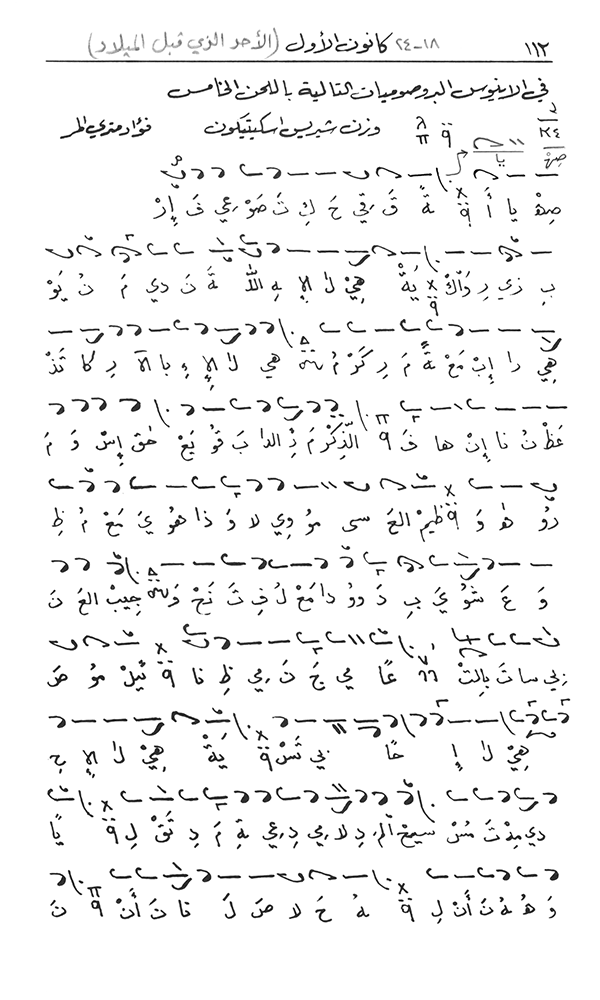 ١١٢ ١٨-٢٤ كانون الأول (الأحد الذي قبل الميلاد)
في الاينوس البروصوميات التالية باللحن الخامس
وزن شيريس اسكيتيكون فؤاد متري المر
صِهْ يا أَ ةُ قَ رِقي حَ كِ تَ ضَوْ عي فَ إِرْ
بِ زي رِ وَاكْ يَةْ هِيْ لا الإِ هِ اللّٰ ةَ نَ دي مَ نُ يَوْ
هِي را إِبْ مَعْ ةً مَ رِ كَرْ مُ هي لا الإِ ءِ با الآ رِ كا تَذْ
عَظْ نُ نا إِنْ ها فَ الذِكْرْ مَ ذِ الدا بَ قو يَعْ حٰق إِسْ وَ مَ
رُو هٰ وَ ظيمْ العَ سى مو وِي لا وَ ذا هُو يَ مَعْ مُ ظِ
وَ عَ شو يَ بِ دَ وو دا مَعْ لُ فِ تَ نَحْ وَ جيبْ العَ نَ
بي سا تَ بِالتْ عًا مي جَ نَ مي ظِ نا ئيلْ مو صَ
هِيْ لا إِ حًا بي تَسْ يَةْ هِيْ لا الإِ حِ
دي مِدْ تَ مُسْ سيحْ المَ دِ لا مي دِ عي ةِ مَ دِ تَقْ لِ يًا
وَ هُ نَ أَنْ لِ هُ حَ لا صَ لَ نا تَ أَنْ نَ